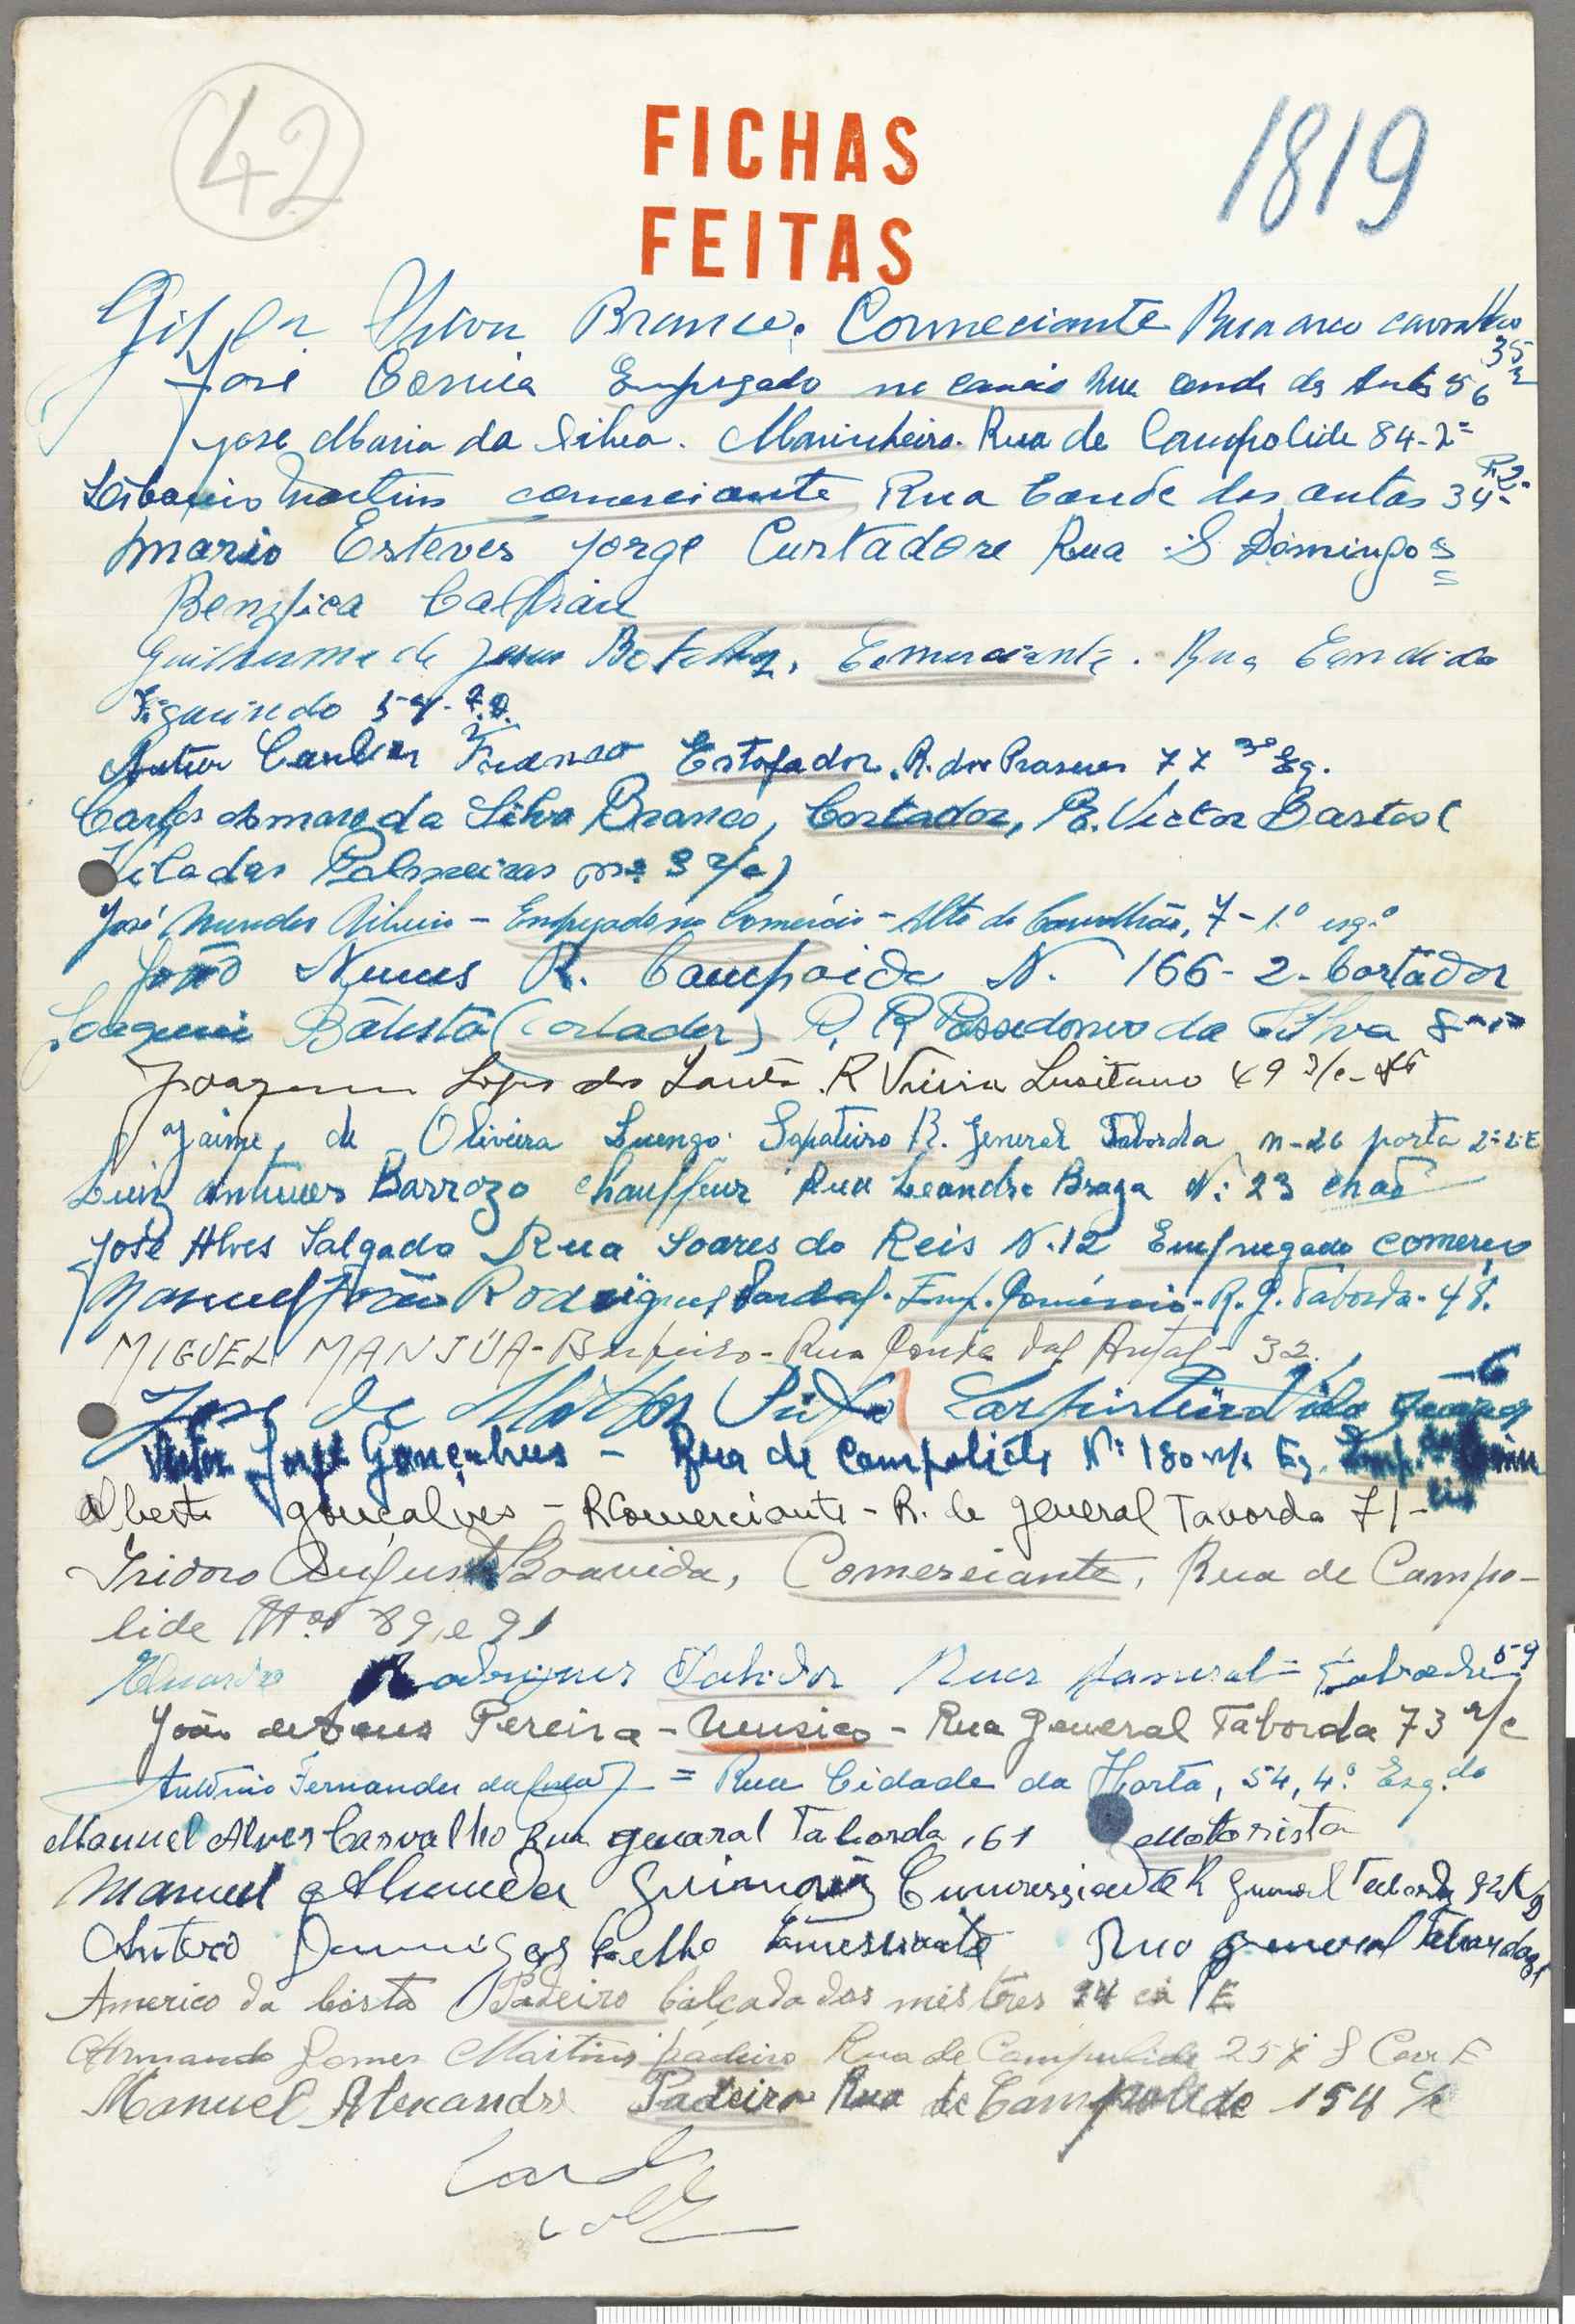 42
FICHAS
FEITAS
1819
Silva Branco. Comneciante Rua arco carvalhão
35
José Correia Empregado no comercio Rua conde das Antas 56
José Maria da Silva. Marinheiro. Rua de Campolide 84-2º
Martins comerciante Rua Conde das antas 34
Mario Esteves Jorge Curtadore Rua S Domingos
Benfica
Guilherme de Jesus Botelho, Comerciante. Rua Candido
Figueiredo
Artur Franco Estofador. R. dos Prazeres 77 3º Eq.
Carlos Amaro da Silva Branco, Cortador, R. Victor Bastos (
Vila das Palmeiras nº 3 r/c)
José Mendes - Empregado no Comércio - Alto do Carvalhão, 7-1º esqº
João Nunes R. Campoide N. 166-2-Cortador
Joaquim Batista (Cortador) R. Possedonio da Silva
Joaquim Lopes dos Santos R Vieira Lusitano 49 r/c
Jaime, de Oliveira Luengo. Sapateiro R. General Taborda n-26 porta 2=2-E
Luiz Antunes Barrozo chauffeur Rua Leandro Braga Nº 23 chaõ
José Alves Salgado Rua Soares do Reis N.12 Empregado comercio
Manuel João Rodrigues - Emp. Comércio - R. G. Taborda - 48.
MIGUEL MANJÚA - Barbeiro - Rua Conde das Antas - 32.
José de Mattos Pinto Carpinteiro Vila 6
Vitor Jorge Gonçalves - Rua de Campolide Nº 180 r/c Eq. Emp.
Alberto gonçalves - Comerciante - R. de general Tavorda 71-
Isidoro Augusto Boavida, Comerciante, Rua de Campo-
lide Nos 89 e 91
Eduardo Rodrigues Rua 59
João de Deus Pereira - Musico - Rua General Taborda 73 r/c
António Fernandes da = Rua Cidade da Horta, 54, 4.º Esq.do
Manuel Alves Carvalho Rua general Taborda, 61 Motorista
Manuel Almeida Guimarães R General Taborda
Antero Domingos Coelho Rua general Taborda
Americo da Costa Padeiro Calçada dos mestres E
Armando Gomes Martins padeiro Rua de Campolide
Manuel Alexandre Padeiro Rua de Campolide 154